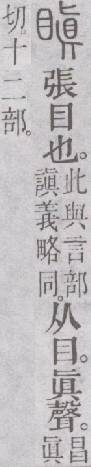 瞋張目也。此與言部謓義略同。从目。眞聲。昌眞
切十二部。